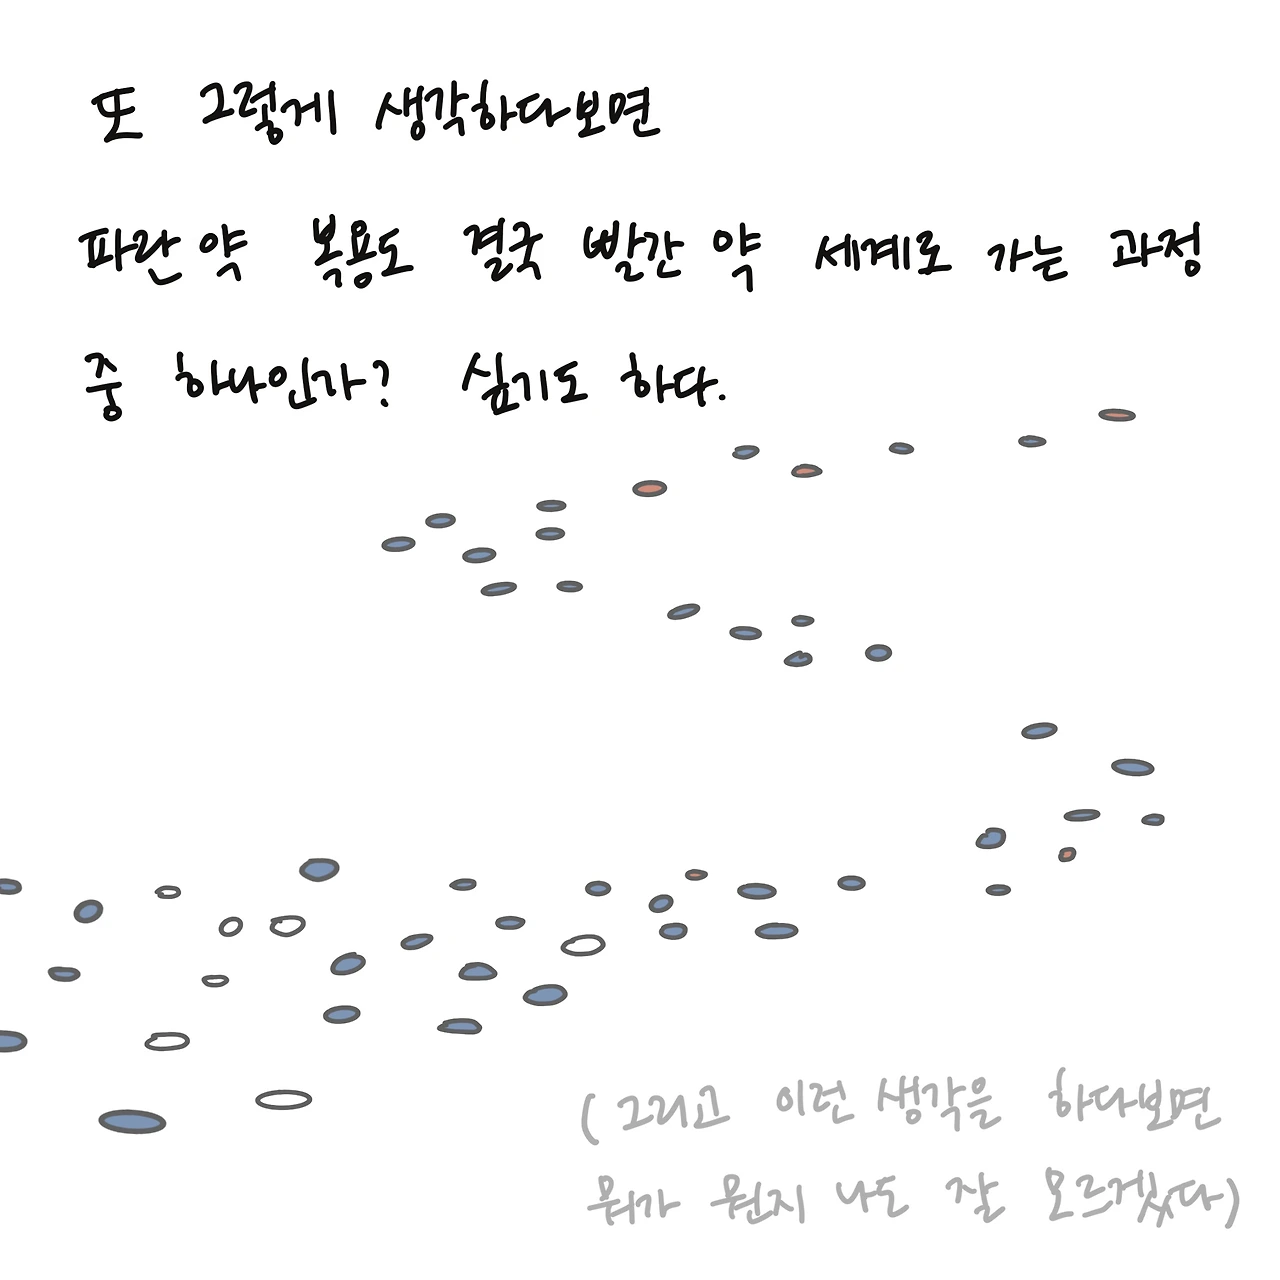 또 그렇게 생각하다보면
파란 약 복용도 결국 빨간 약 세계로 가는 과정
중 하나인가? 싶기도 하다.
(그리고 이런 생각을 하다보면
뭐가 뭔지 나도 잘 모르겠다)